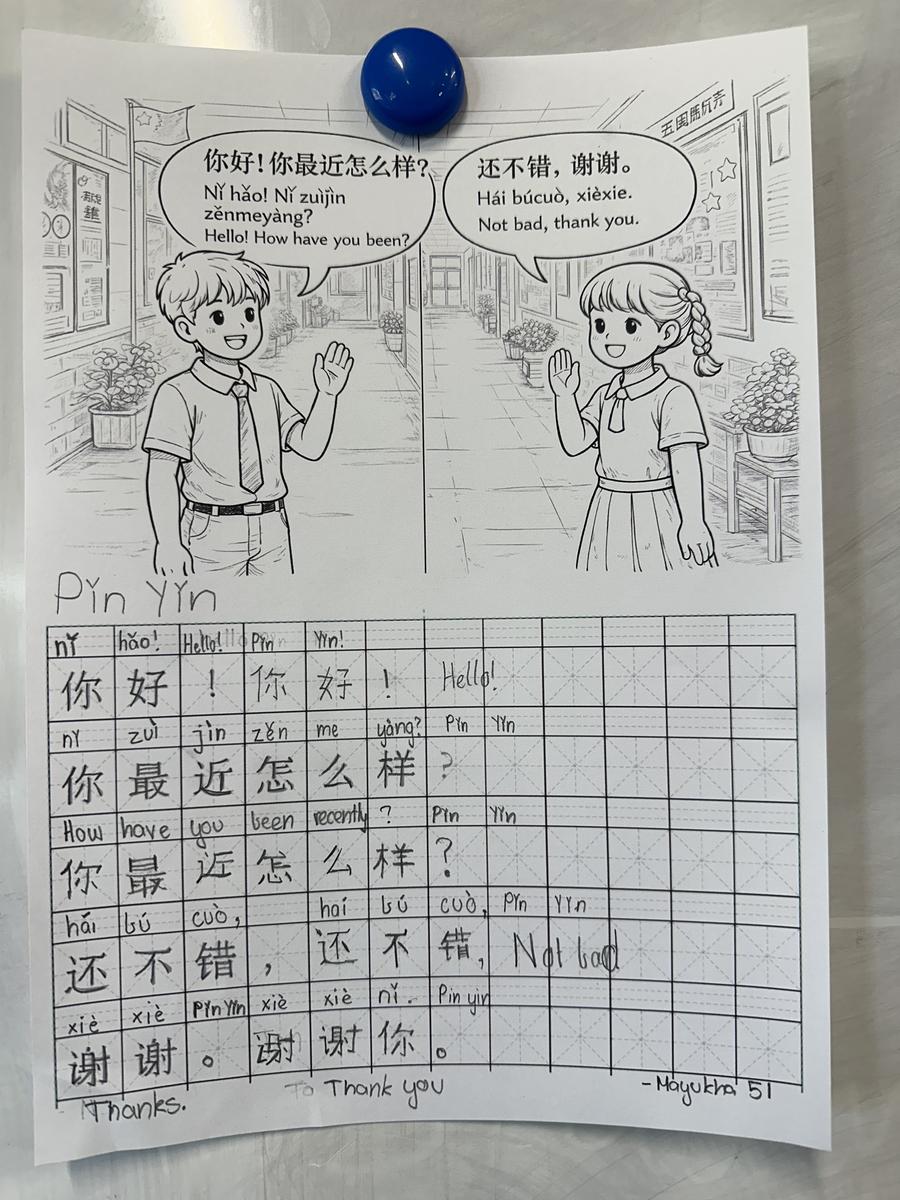 你好！你最近怎么样？
Nǐ hǎo! Nǐ zuìjìn
zěnmeyàng?
Hello! How have you been?
还不错，谢谢。
Hái búcuò, xièxie.
Not bad, thank you.
Pǐn Yǐn
nǐ hǎo! Hello! Pǐn Yǐn!
你 好 ！ 你 好 ！ Hello!
nǐ zuì jìn zěn me yàng? Pǐn Yǐn
你 最 近 怎 么 样 ?
How have you been recently ? Pǐn Yǐn
你 最 近 怎 么 样 ?
hái bú cuò, haí bú cuò, Pǐn Yǐn
还 不 错 ， 还 不 错, Not bad
xiè xiè Pǐn Yǐn xiè xiè nǐ. Pin yin
谢 谢 。 谢 谢 你 。
Thanks. To Thank you
-Mayukha 51